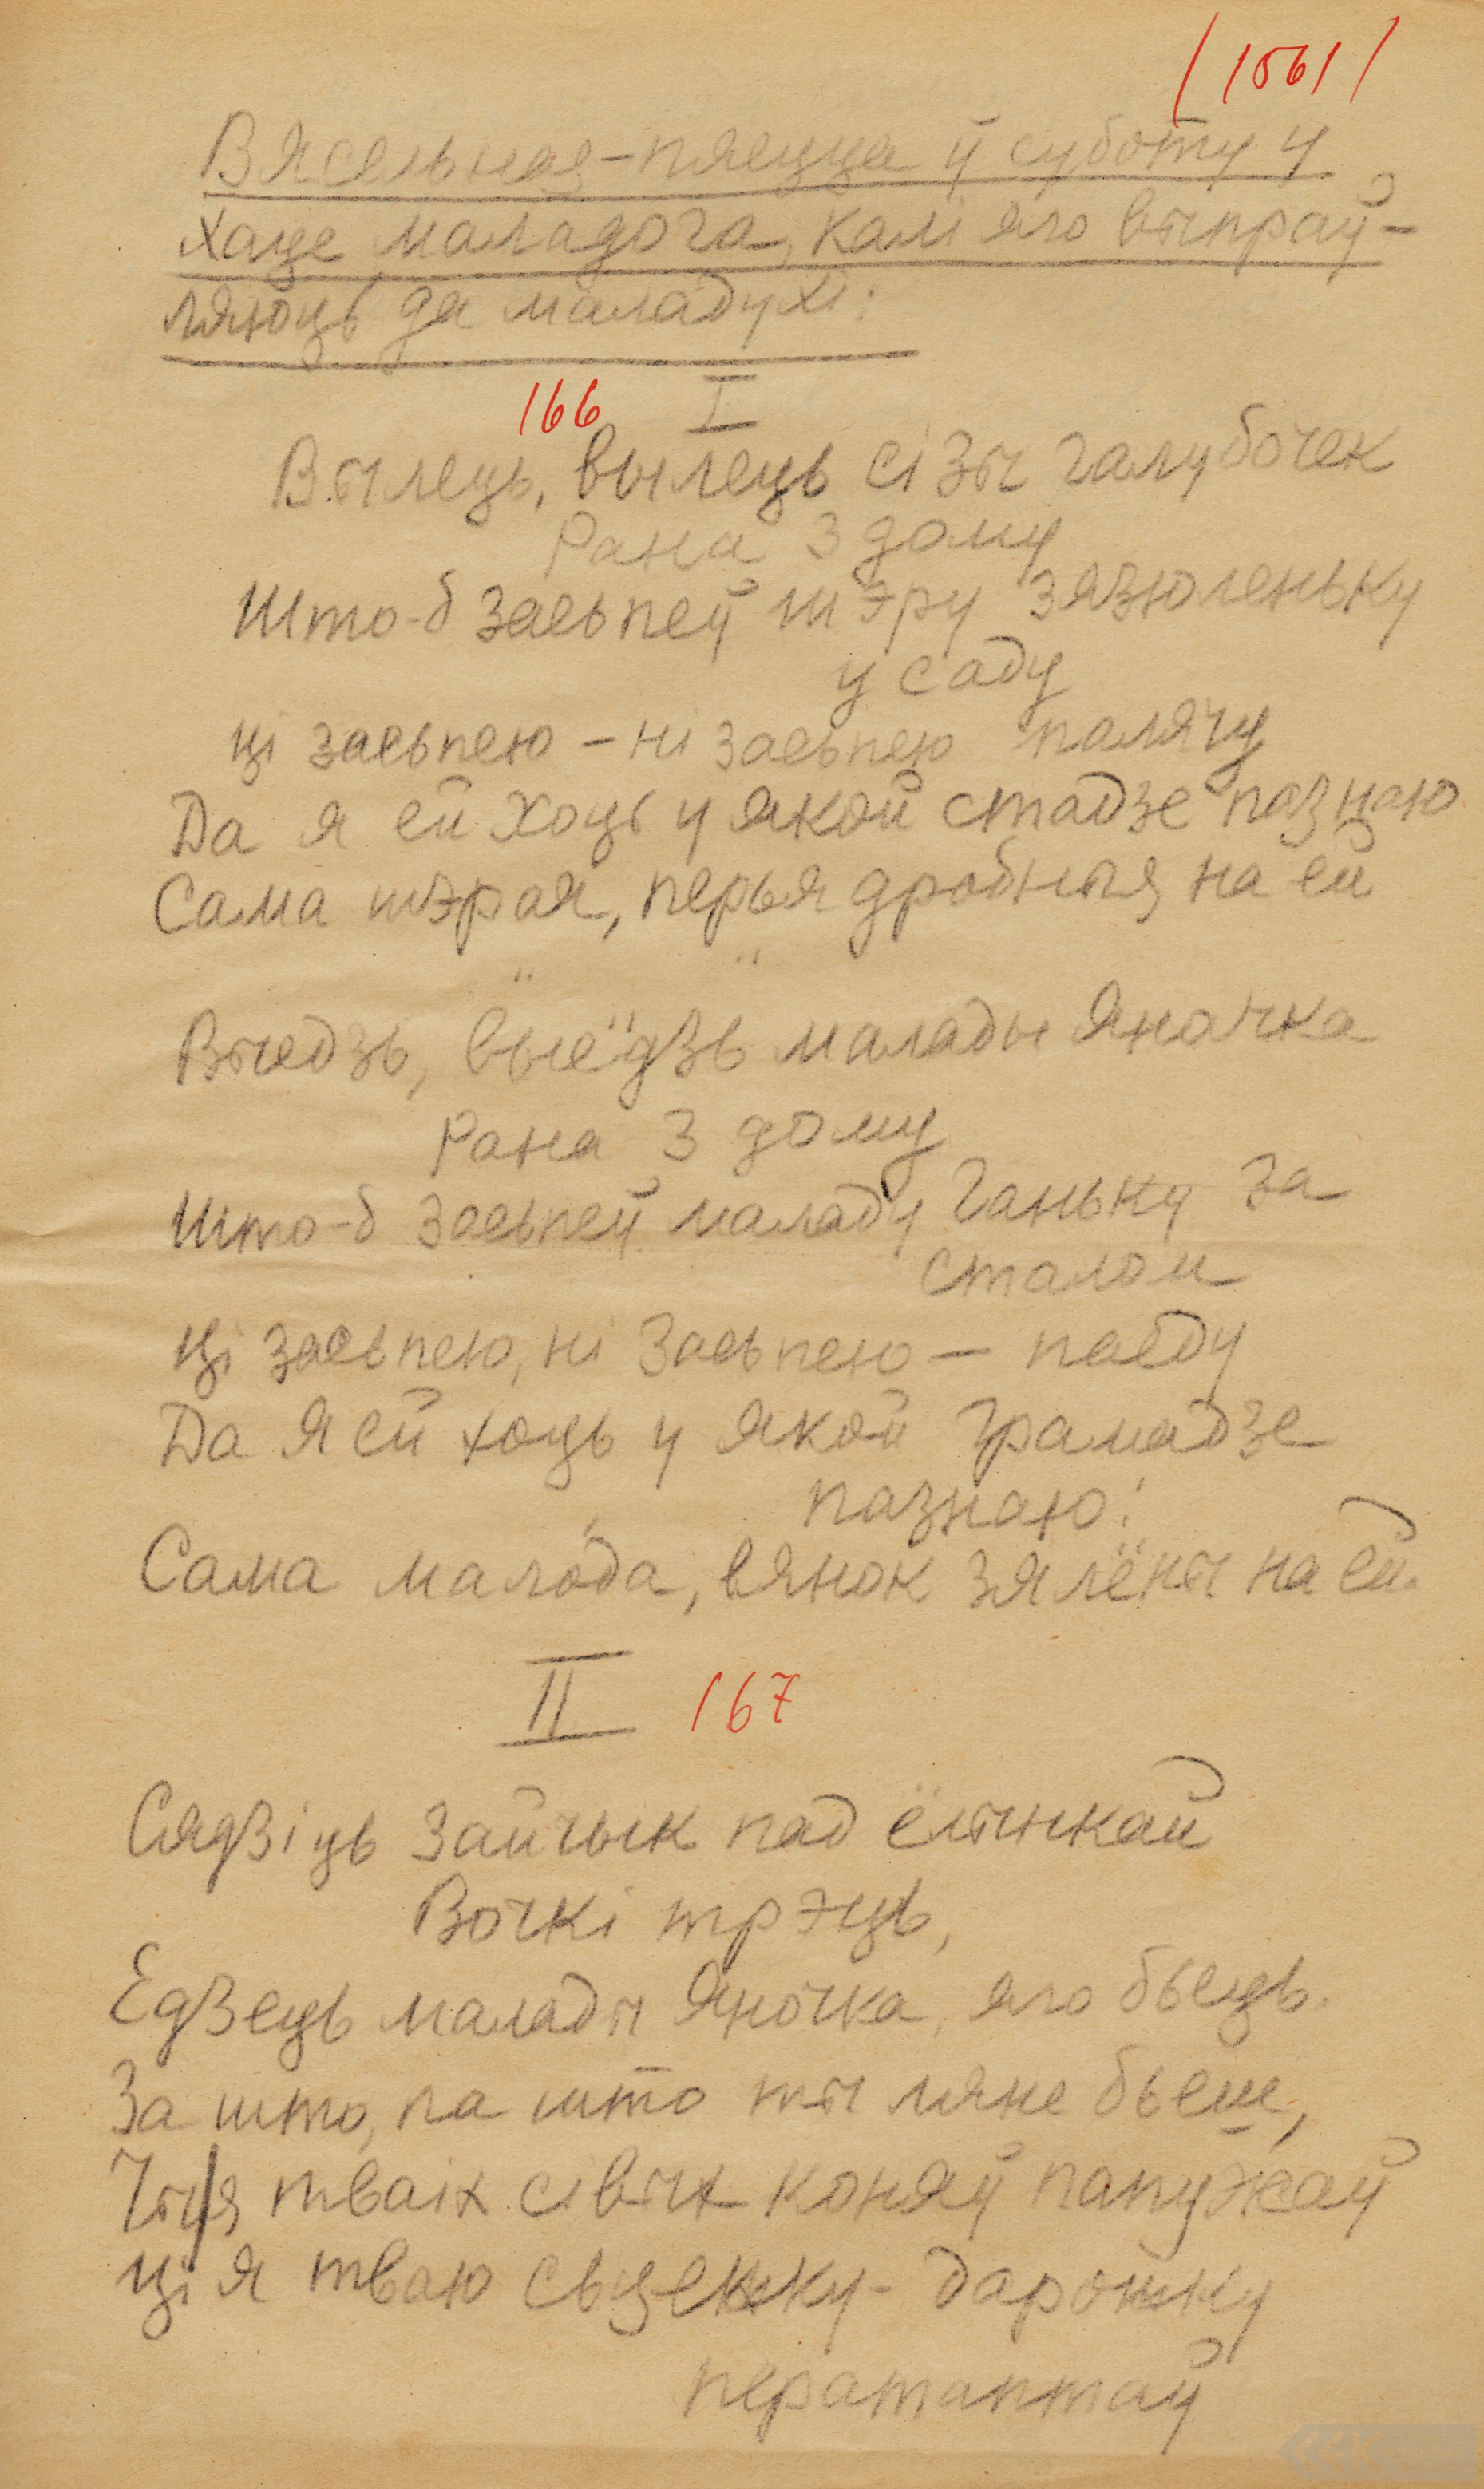 (1561)
Вясельная-пяецца ў суботу у
хаце маладога, калі яго выпраў-
ляюць да маладухі:
166 I
Вылець, вылець сізы галубочек
Рана з дому
Што-б засьпеў шэру зязюленьку
у саду
Ці засьпею – ні засьпею палячу
Да я ей хоць у якой стадзе пазнаю
Сама шэрая, перья дробныя на ей
Выедзь, выёдзь малады Яначка
Рана з дому
Што-б засьпеў маладу Ганьку за
сталом
Ці засьпею, ні засьпею – паеду
Да я ей хоць у якой грамадзе
пазнаю!
Сама малода, вянок зялёны на ей.
II 167
Сядзіць зайчык пад ёлынкай
Вочкі трэць,
Едзець малады Яночка, яго бьець.
За што, па што ты мяне бьеш,
Ці я тваіх сівых коняў папужаў
Ці я тваю сьцежку-дарожку
ператаптаў